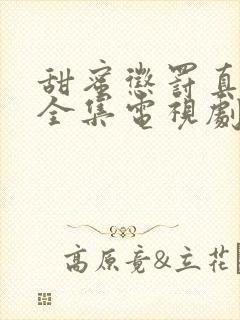 甜蜜懲罰真
全集電視劇
高原竟&立花